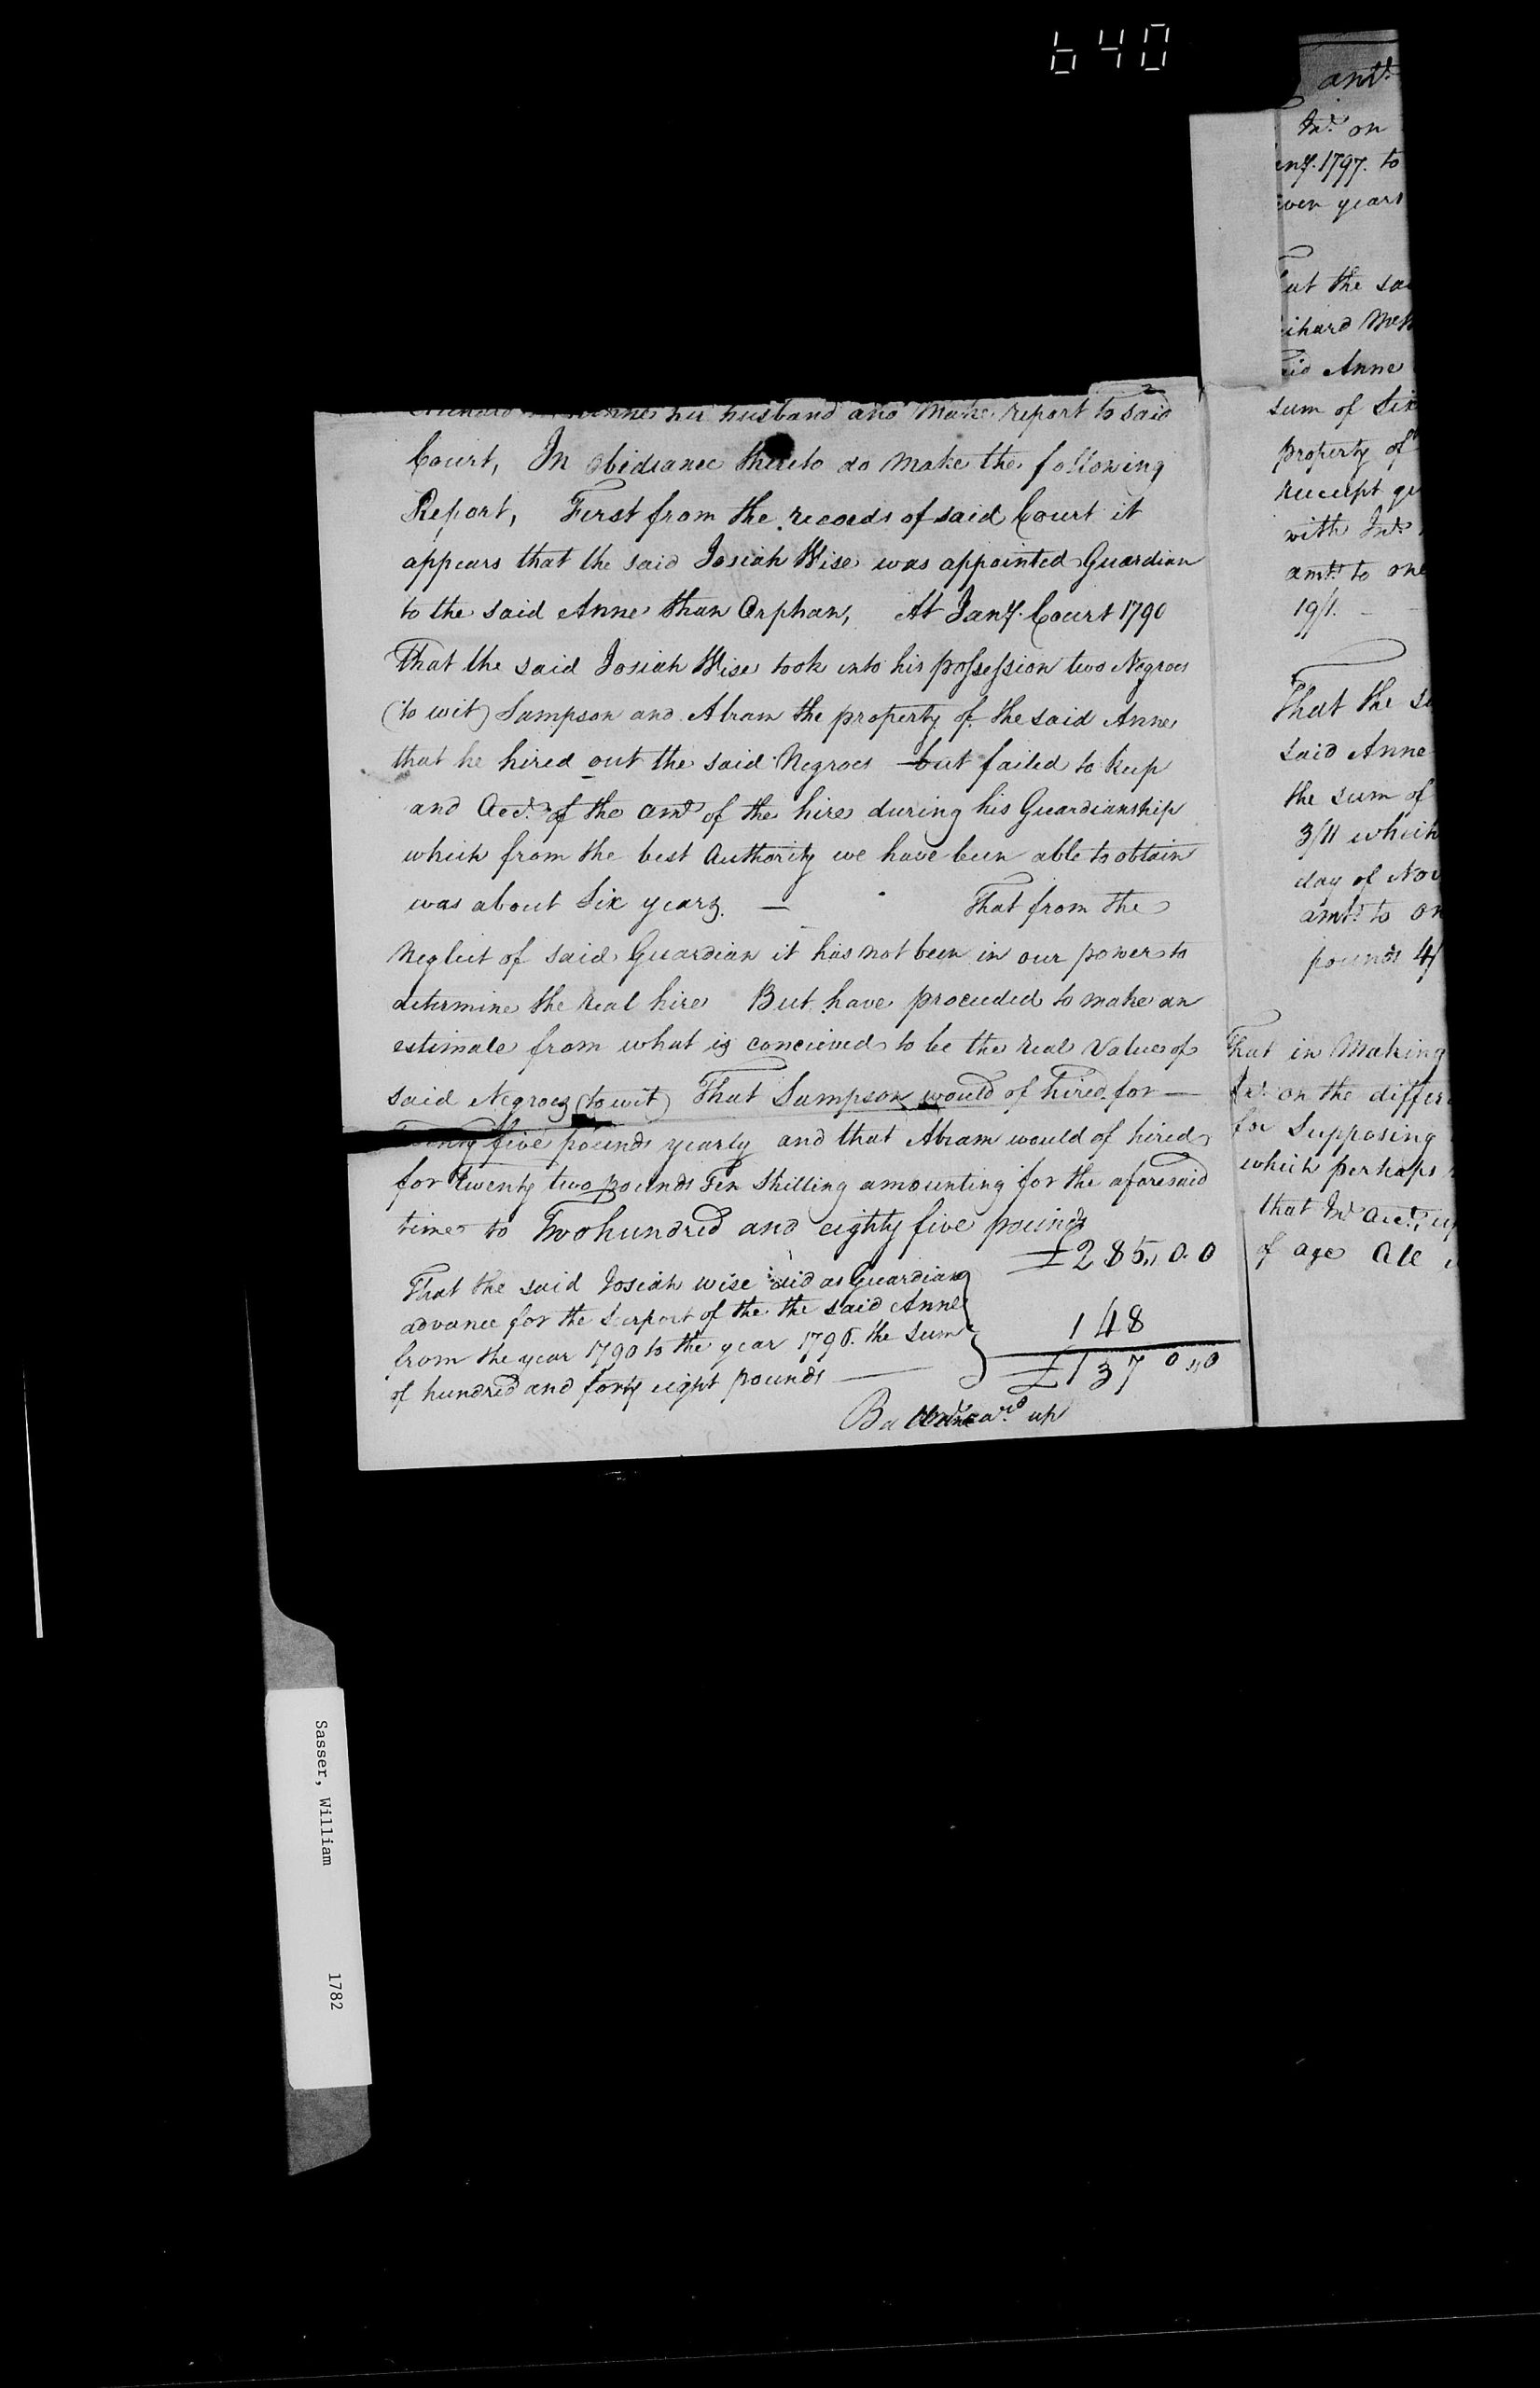 640
2
her husband and Make report to said
Court, In obidiance thereto do make the following
Report, First from the records of said Court it
appears that the said Josiah Wise was appointed Guardian
to the said Anne than Orphan, At Jany. Court 1790
That the said Josiah Wise took into his possession two Negroes
(to wit) Sampson and Abram the property of the said Anne
that he hired out the said Negroes but failed to keep
and Acct. of the amt of the hire during his Guardianship
which from the best Authority we have been able to obtain
was about Six years. — That from the
Neglect of said Guardian it has not been in our power to
determine the real hire But have proceeded to make an
estimate from what is concieved to be the real Value of
said Negroes (to wit) That Sampson would of hired for —
five pounds yearly and that Abram would of hired
for twenty two pounds Ten Shilling amounting for the aforesaid
time to Two hundred and eighty five pounds
£285,,0.0
That the said Josiah Wise did as Guardian
advance for the Surport of the the said Anne
from the year 1790 to the year 1796. the Sum
of hundred and forty eight pounds —
148
£137 0,,0
up
amt.
Int. on
1797. to
years
the
sum of Six
property of
receipt
with Int
amt. to one
19/1. —
That the
said Anne
the sum of
3/11 which
day of Nov
amt. to
pounds 4/
That in Making
Int. on the
for Supposing
which perhaps
that Int Acct.
of age
Sasser, William 1782